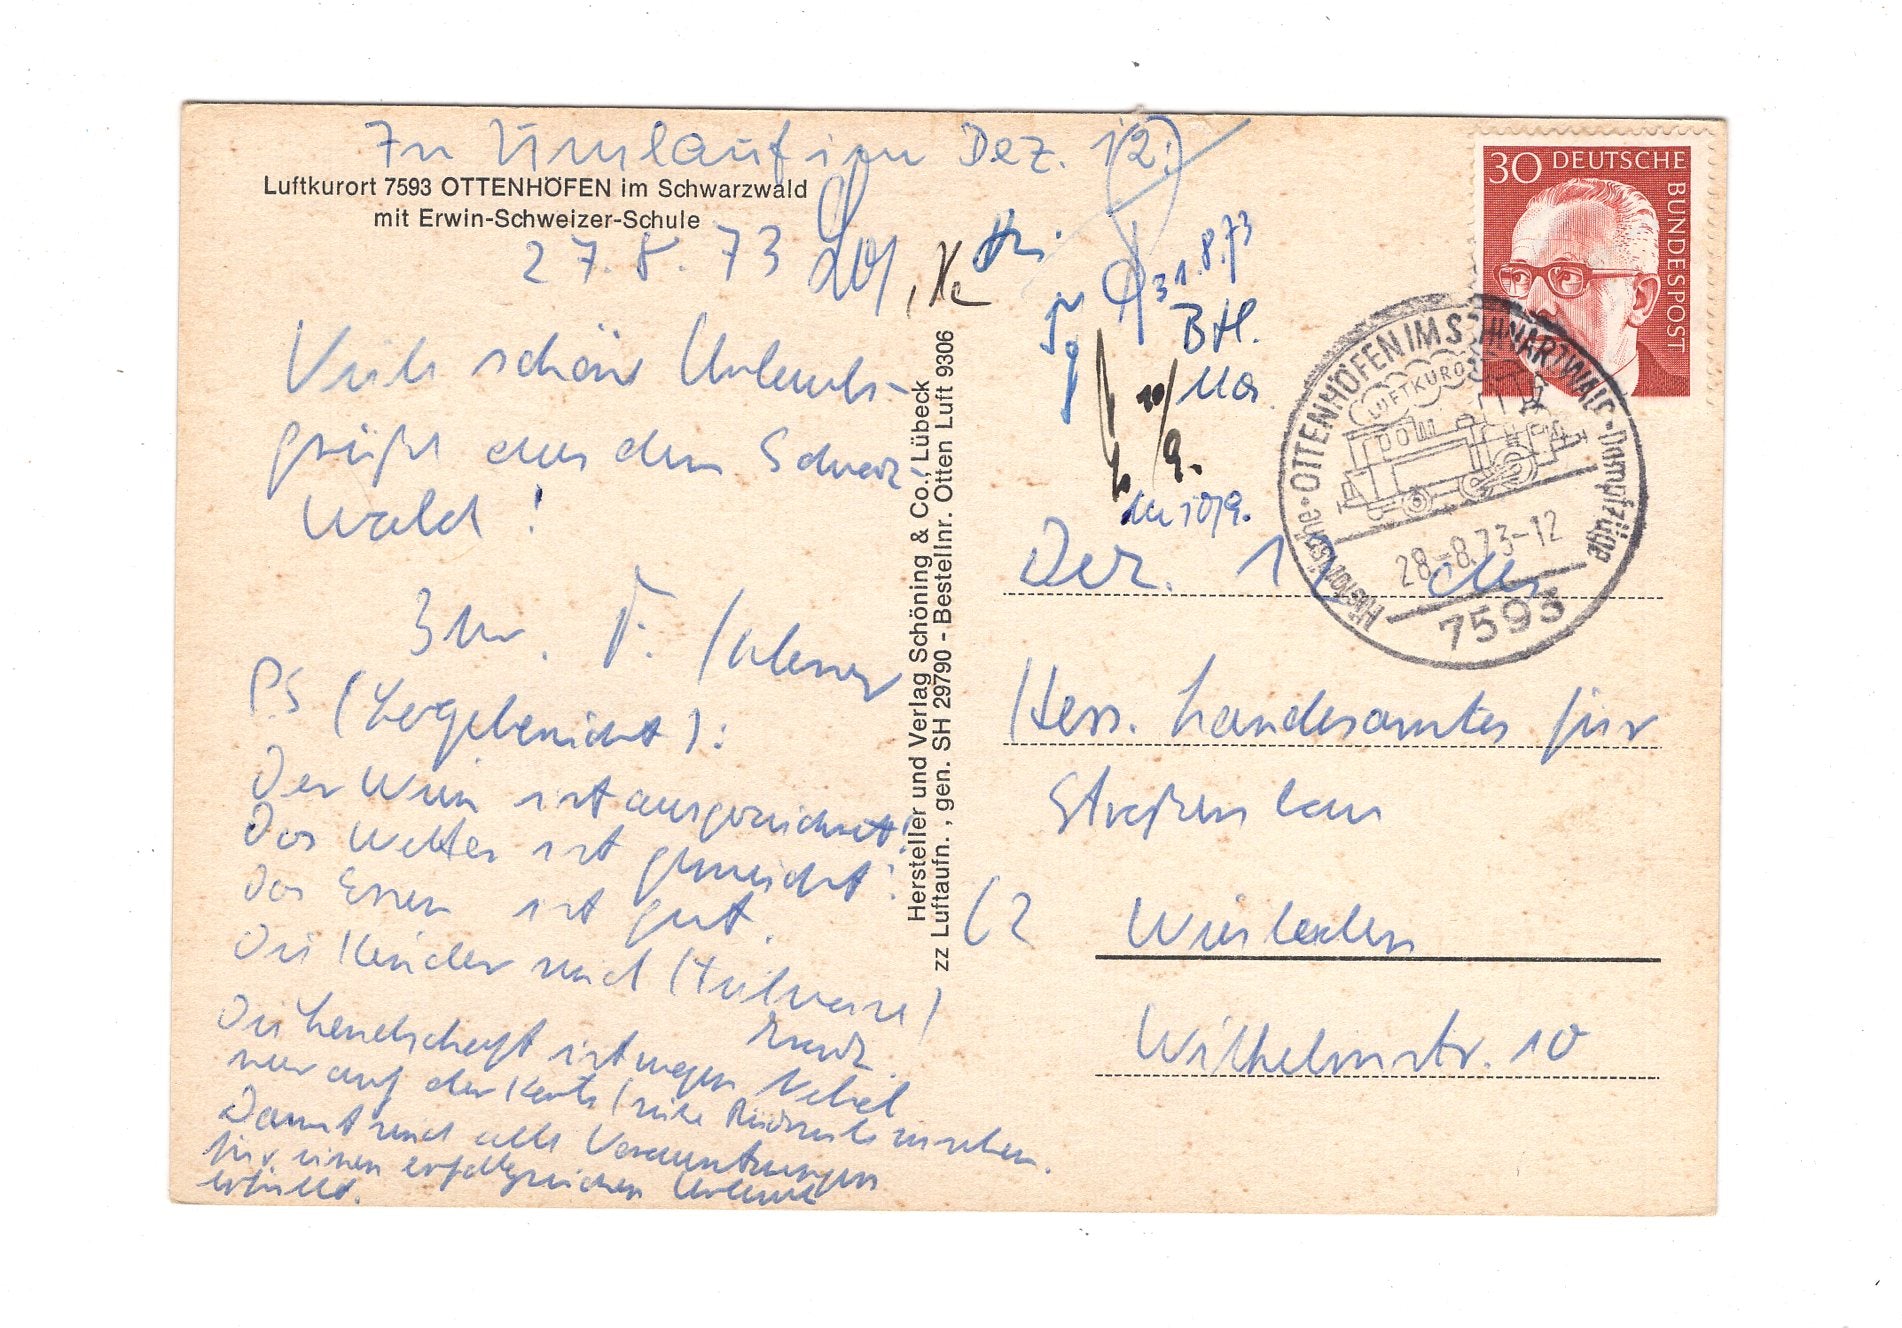 In Umlauf im Dez. 12.
Luftkurort 7593 OTTENHÖFEN im Schwarzwald
mit Erwin-Schweizer-Schule
27.8.73
Viele schöne Urlaubs-
grüße aus dem Schwarz-
wald!
Ihr F.
P.S. (Lagebericht):
Der Wein ist ausgezeichnet!
Das Wetter ist gemischt!
Das Essen ist gut.
Die Kinder sind (teilweise)
Die Landschaft ist wegen Nebel
nur auf der Karte (siehe Rückseite) zu sehen.
Damit sind alle Voraussetzungen
für einen erfolgreichen Urlaub
erfüllt.
Hersteller und Verlag Schöning & Co., Lübeck
zz Luftaufn., gen. SH 29790 - Bestellnr. Otten Luft 9306
31.8.73
BH.
10/9.
10/9.
30 DEUTSCHE BUNDESPOST
OTTENHÖFEN IM SCHWARZWALD • Dampfzüge
Historische
LUFTKURORT
28.-8.73-12
7593
Dez. 12 des
Hess. Landesamtes für
Straßenbau
62 Wiesbaden
Wilhelmstr. 10